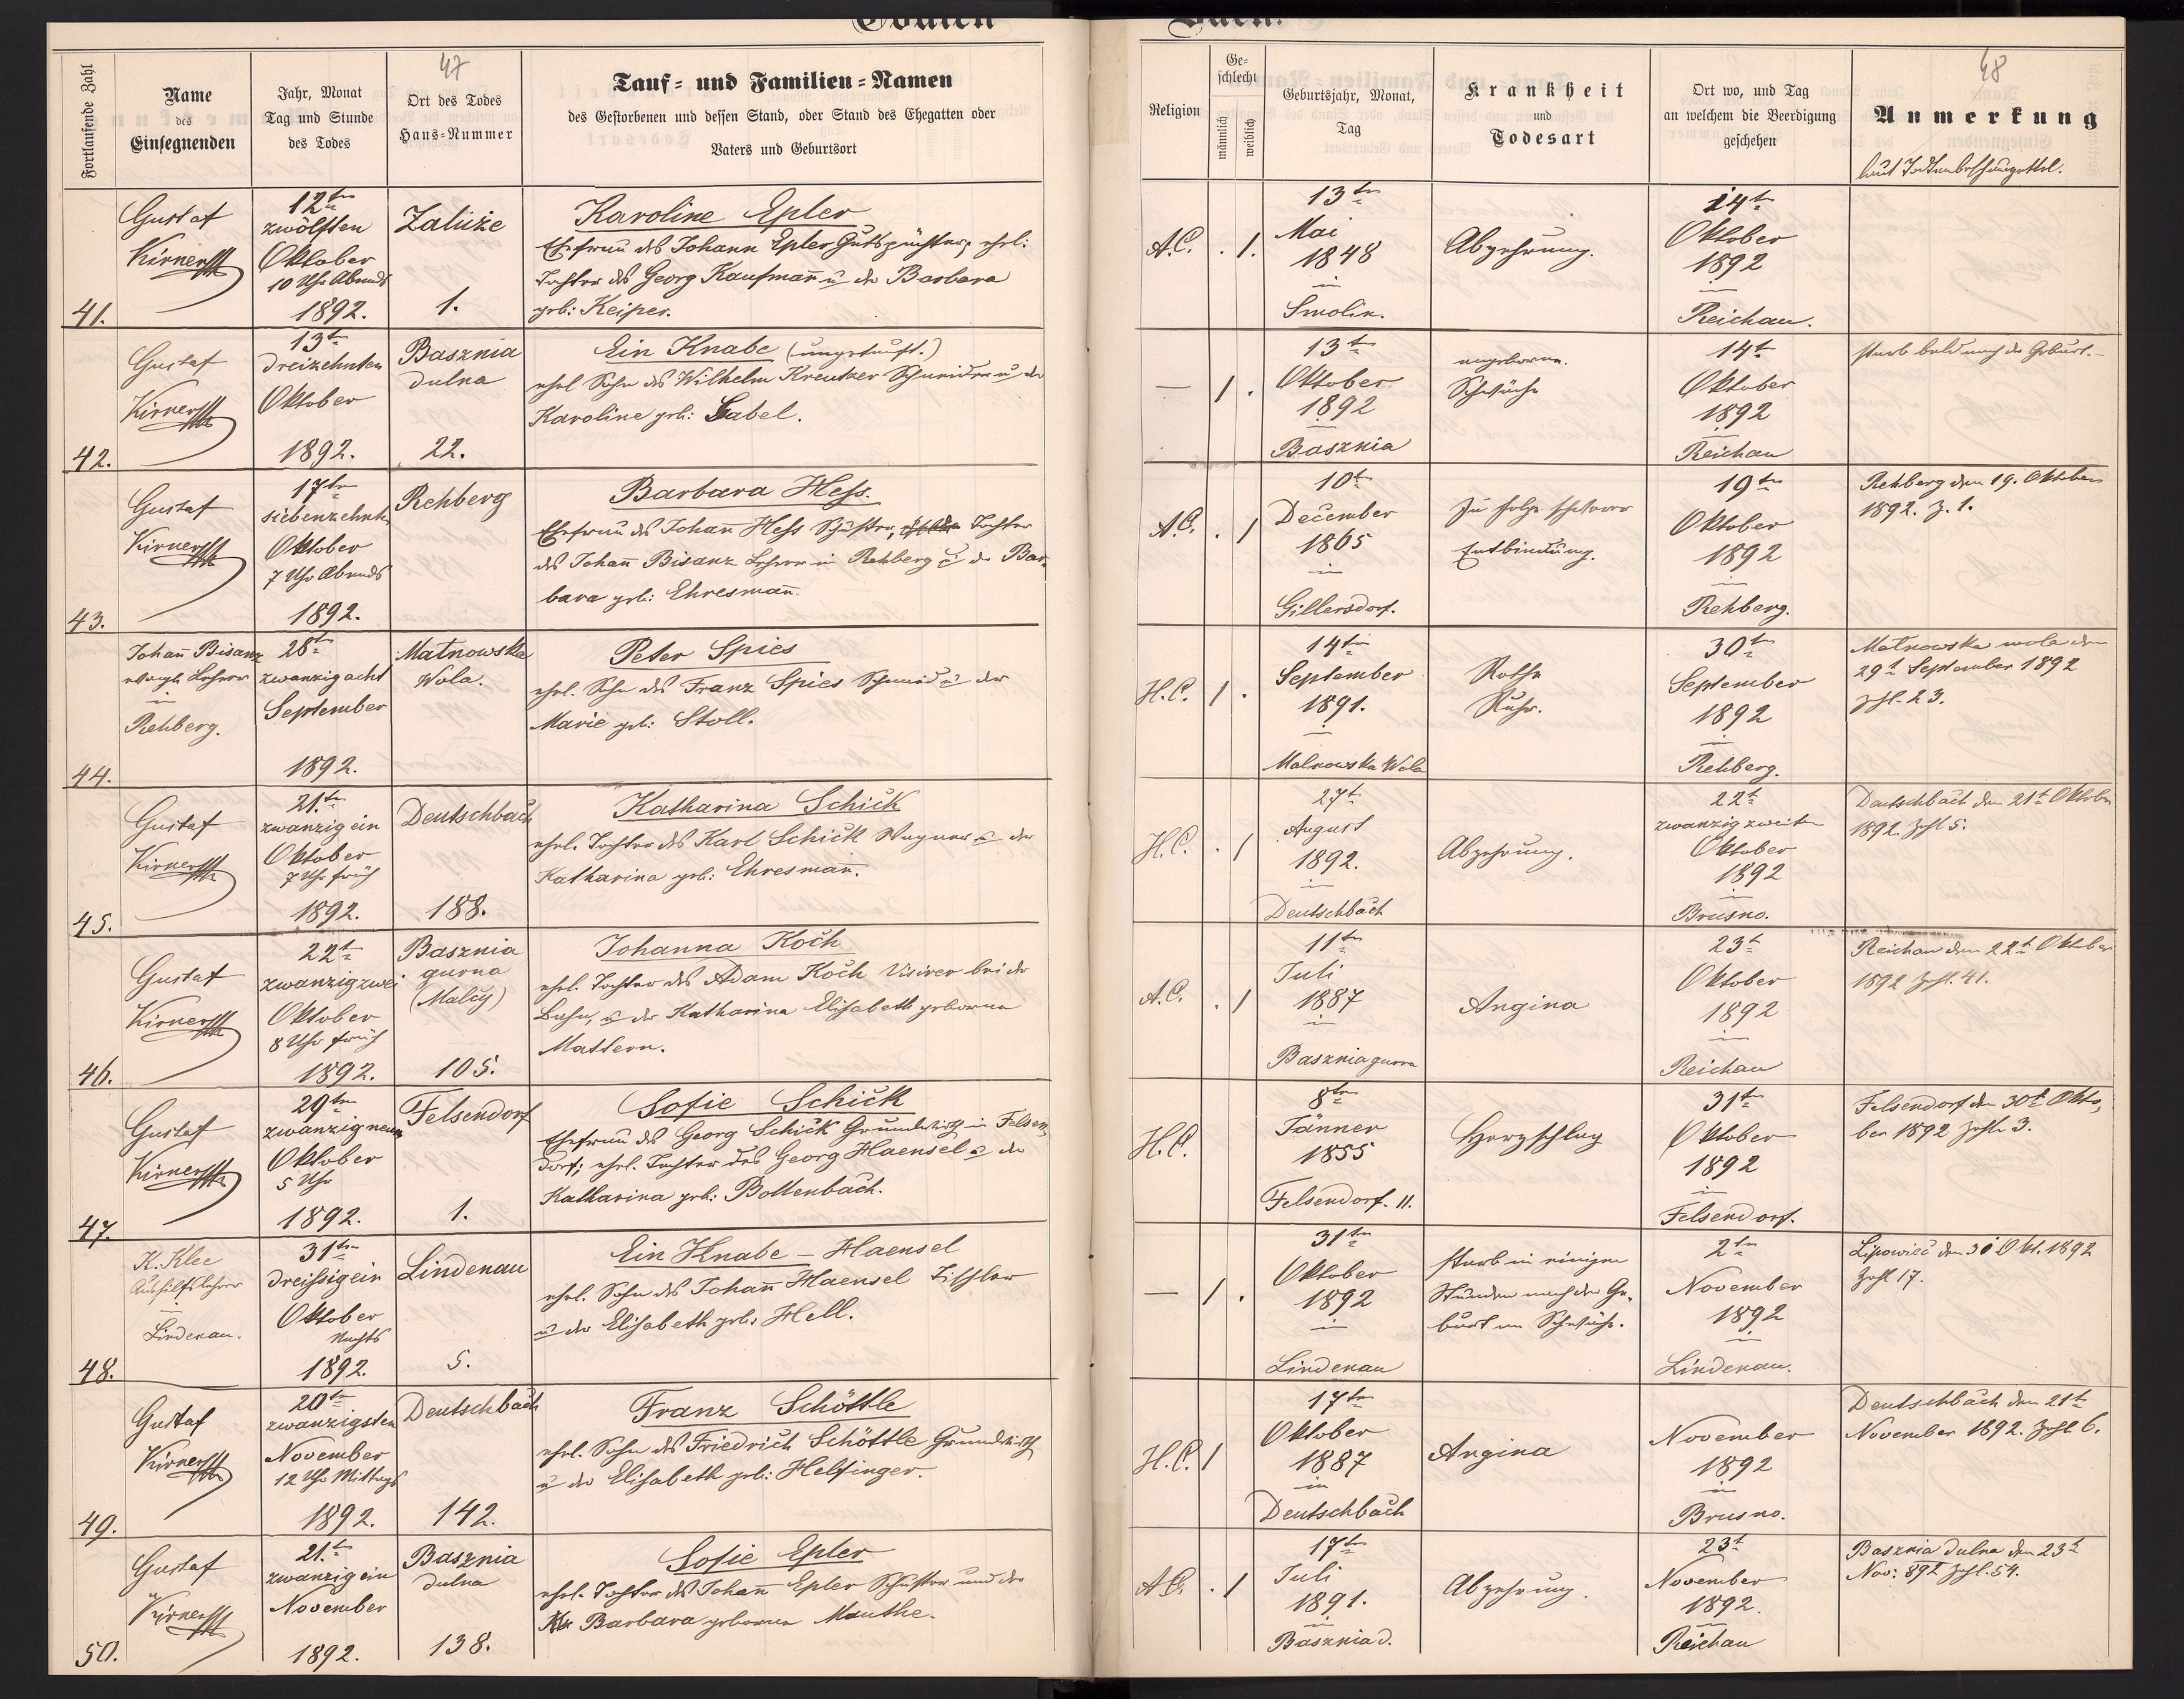 Todten
Buch.
47
48
Fortlaufende Zahl
Name
des
Einsegnenden
Jahr, Monat
Tag und Stunde
des Todes
Ort des Todes
Haus-Nummer
Tauf- und Familien-Namen
des Gestorbenen und dessen Stand, oder Stand des Ehegatten oder
Vaters und Geburtsort
Religion
Ge-
schlecht
männlich
weiblich
Geburtsjahr, Monat,
Tag
Krankheit
und
Todesart
Ort wo, und Tag
an welchem die Beerdigung
geschehen
Anmerkung
laut Todtenbeschauzettel.
41.
Gustaf
Kirner
12ten
zwölften
Oktober
10 Uhr Abends
1892.
Zaluże
1.
Karoline Epler
Ehefrau des Johann Epler Gutspächter, ehel.
Tochter des Georg Kaufmañ u der Barbara
geb: Keiper.
A.C.
. 1.
13ten
Mai
1848
in
Smolin.
Abzehrung.
14t
Oktober
1892
in
Reichau.
42.
Gustaf
Kirner
13ten
dreizehnten
Oktober
1892.
Basznia
dulna
22.
Ein Knabe (ungetauft.)
ehel Sohn des Wilhelm Kreutzer Schneider u der
Karoline geb: Gabel.
—
1 .
13t
Oktober
1892
in
Basznia
angeborne.
Schwäche
14t
Oktober
1892
in
Reichau
starb bald nach der Geburt.-
43.
Gustaf
Kirner
17ten
siebenzehnten
Oktober
7 Uhr Abends
1892.
Rehberg
Barbara Hess.
Ehefrau des Johañ Hess Schuster, Tochter
des Johañ Bisanz Lehrer in Rehberg u der Bar-
bara geb: Ehresmañ.
A.C.
. 1
10t
December
1865
in
Gillersdorf.
Zu folge schwerer
Entbindung.
19ten
Oktober
1892
in
Rehberg.
Rehberg den 19. Oktober
1892. Z. 1.
44.
Johañ Bisanz
evang. Lehrer
in
Rehberg.
28t
zwanzig acht
September
1892.
Malnowska
Wola.
Peter Spies
ehel. Sohn des Franz Spies Schmied u der
Marie geb: Stoll.
H.C.
1 .
14ten
September
1891.
in
Malnowska Wola
Rothe
Ruhr.
30t
September
1892
in
Rehberg.
Malnowska wola den
29t September 1892
Zhl. 23.
45.
Gustaf
Kirner
21.t
zwanzig ein
Oktober
7 Uhr früh
1892.
Deutschbach
188.
Katharina Schick
ehel. Tochter des Karl Schick Wagner u der
Katharina geb: Ehresmañ.
H.C.
. 1
27t
August
1892.
in
Deutschbach
Abzehrung.
22t
zwanzig zweiten
Oktober
1892
in
Brusno.
Deutschbach den 21t Oktober
1892. Zhl 5.
46.
Gustaf
Kirner
22t
zwanzig zwei
Oktober
8 Uhr früh
1892.
Basznia
gurna
105.
Johanna Koch
ehel. Tochter des Adam Koch bei der
Bahn, u der Katharina Elisabeth geborene
Mattern.
A.C.
. 1
11ten
Juli
1887
in
Basznia gurna
Angina
23t
Oktober
1892
in
Reichau
Reichau den 22t Oktober
1892 Zhl. 41.
47.
Gustaf
Kirner
29ten
zwanzig neun
Oktober
5 Uhr
1892.
Felsendorf
1.
Sofie Schick
Ehefrau des Georg Schick Grundwirth in Felsen-
dorf; ehel. Tochter des Georg Haensel u der
Katharina geb: Bollenbach.
H.C.
8ten
Jänner
1855
Felsendorf. 11.
Herzschlag
31t
Oktober
1892
in
Felsendorf.
Felsendorf den 30t Okto,
ber 1892 Zahl 3.
48.
K. Klee
Aushilfslehrer
in
Lindenau.
31ten
dreissigein
Oktober
Nachts
1892.
Lindenau
5.
Ein Knabe - Haensel
ehel. Sohn des Johañ Haensel Tischler
u der Elisabeth geb: Hell.
—
1 .
31ten
Oktober
1892
in
Lindenau
starb in einigen
Stunden nach der Ge-
burt an Schwäche.
2ten
November
1892
in
Lindenau.
Lipowiec den 31 Okt. 1892
Zahl 17.
49.
Gustaf
Kirner
20t
zwanzigsten
November
12 Uhr Mittags
1892.
Deutschbach
142.
Franz Schöttle
ehel. Sohn des Friedrich Schöttle Grundwirth
u der Elisabeth geb: Helfinger.
H.C.
1
17ten
Oktober
1887
in
Deutschbach
Angina
November
1892
in
Brusno.
Deutschbach den 21t
November 1892. Zhl. 6.
50.
Gustaf
Kirner
21.t
zwanzig ein
November
1892.
Basznia
dulna
138.
Sofie Epler
ehel. Tochter des Johañ Epler Schuster und der
Barbara geborene Manthe.
A.C.
. 1
17t
Juli
1891.
in
Basznia d.
Abzehrung.
23t
November
1892.
in
Reichau
Basznia dulna den 23t
Nov: 892 Zhl. 54.